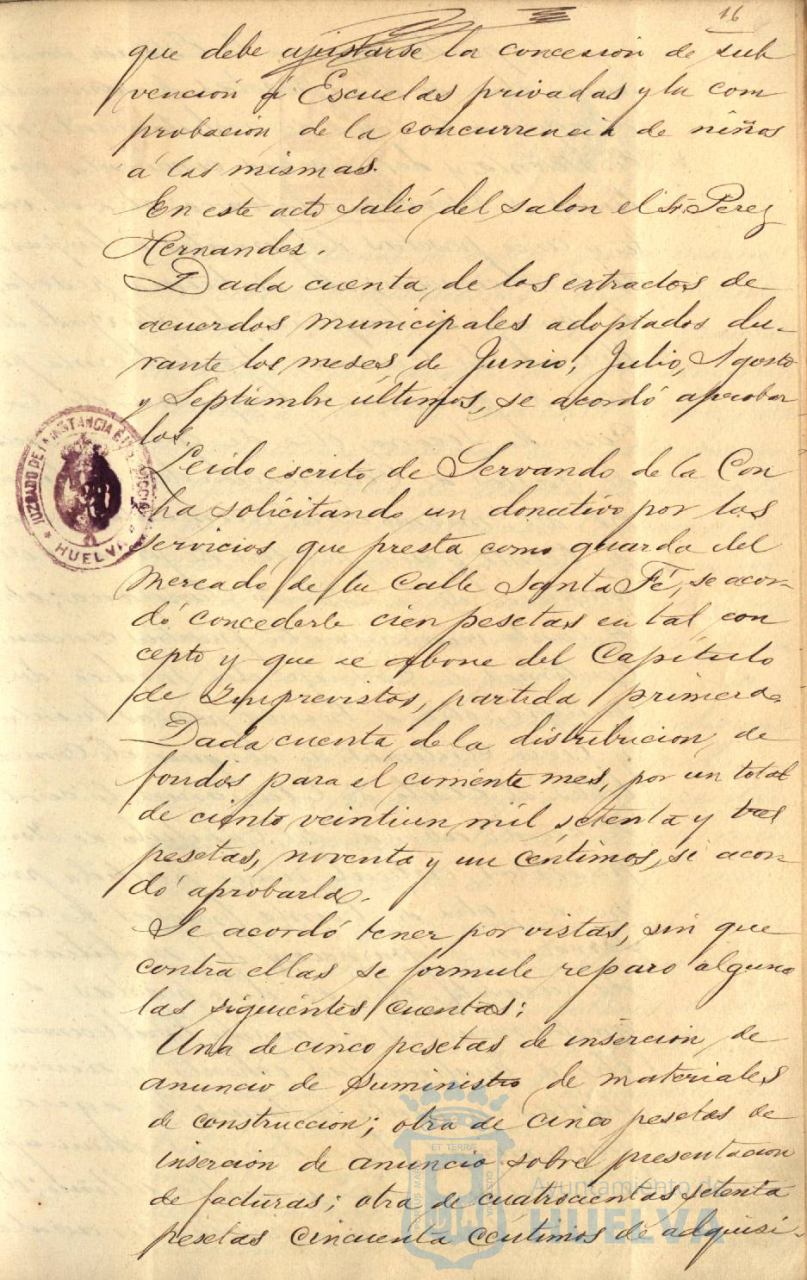 16
que debe ajustarse la concesión de sub
vención á Escuelas privadas y la com
probación de la concurrencia de niños
á las mismas.
En este acto salió del salon el Sr. Perez
Hernandez.
Dada cuenta de los extractos de
acuerdos municipales adoptados du-
rante los meses de Junio, Julio, Agosto
y Septiembre últimos, se acordó aprobar
los.
Leido escrito de Servando de la Con
cha solicitando un donativo por los
servicios que presta como guarda del
mercado de la Calle Santa Fé, se acor-
dó concederle cien pesetas en tal con
cepto y que se abone del Capítulo
de Imprevistos, partida primera.
Dada cuenta de la distribucion de
fondos para el corriente mes, por un total
de ciento veintiun mil setenta y tres
pesetas, noventa y un céntimos, se acor-
dó aprobarla.
Se acordó tener por vistas, sin que
contra ellas se formule reparo alguno
las siguientes cuentas:
Una de cinco pesetas de inserción de
anuncio de suministro de materiales
de construcción; otra de cinco pesetas de
inserción de anuncio sobre presentacion
de facturas; otra de cuatrocientas setenta
pesetas cincuenta céntimos de adquisi-
JUZGADO DE 1ª INSTANCIA É INSTRUCCION
HUELVA
ET TERRÆ
Ayuntamiento de
HUELVA